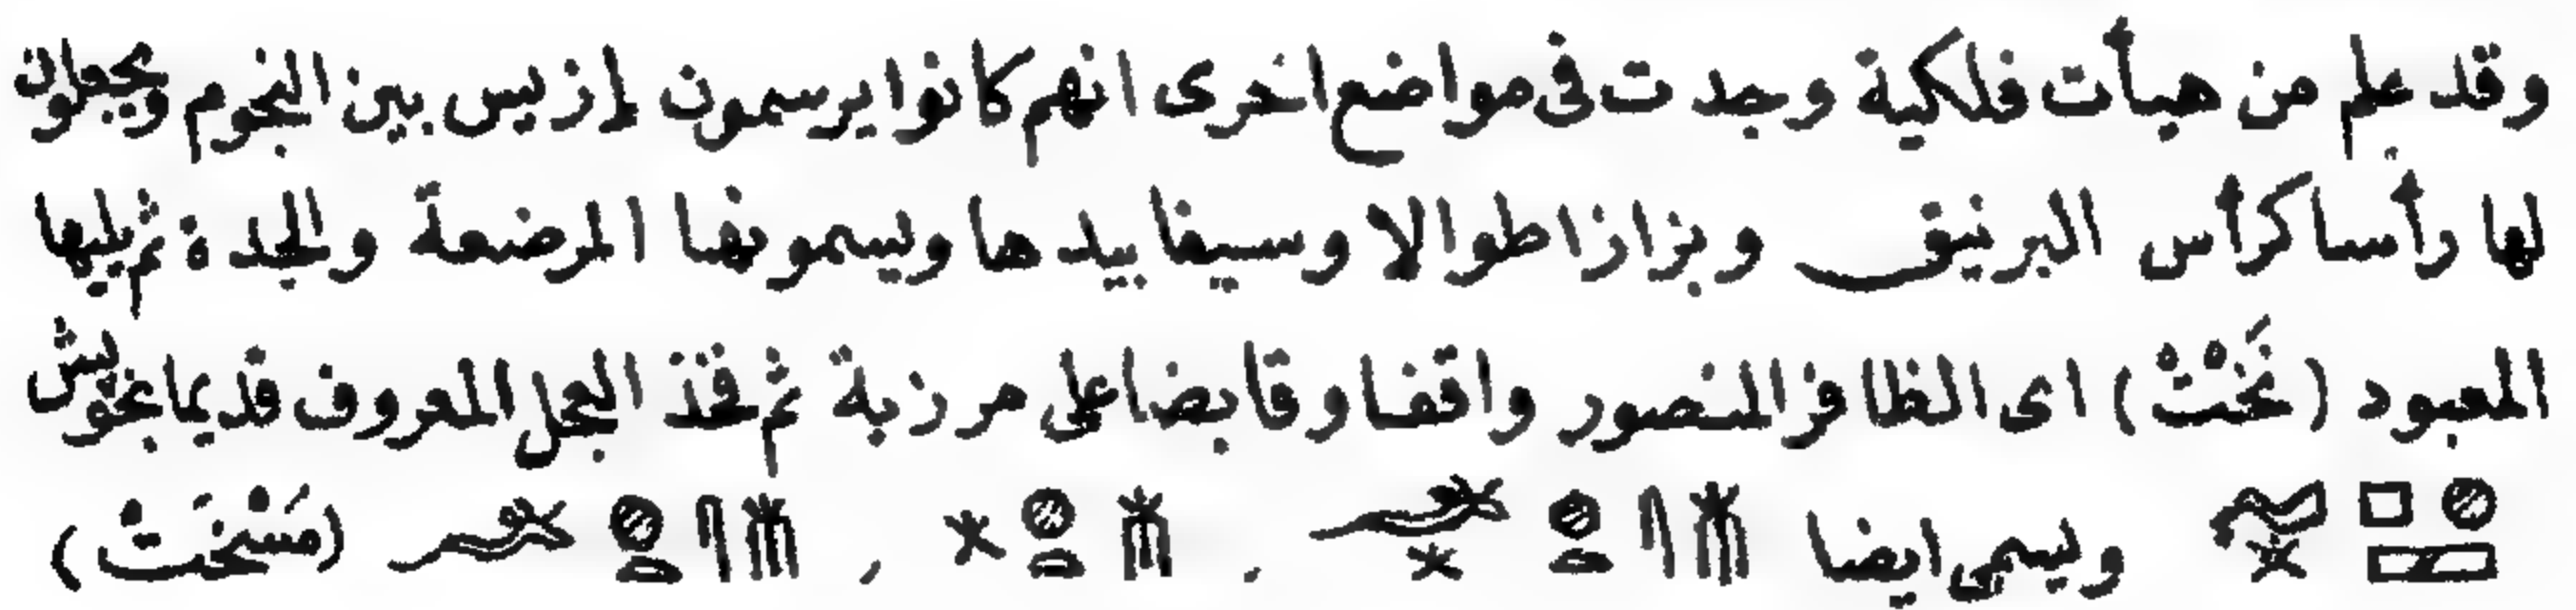 وقد علم من هيأت فلكية وجدت فى مواضع اخرى انهم كانوا يرسمون إزيس بين النجوم ويجعلون
لها رأسا كرأس البرنيق وبزازا طوالا وسيفا بيدها ويسمونها المرضعة والجدة ثم يليها
المعبود (نَخْتْ) اى الظافر المنصور واقفا وقابضا على مرزبة ثم فخذ العجل المعروف قديما بخوپش
ويسمى ايضا (مَسْخَتْ)